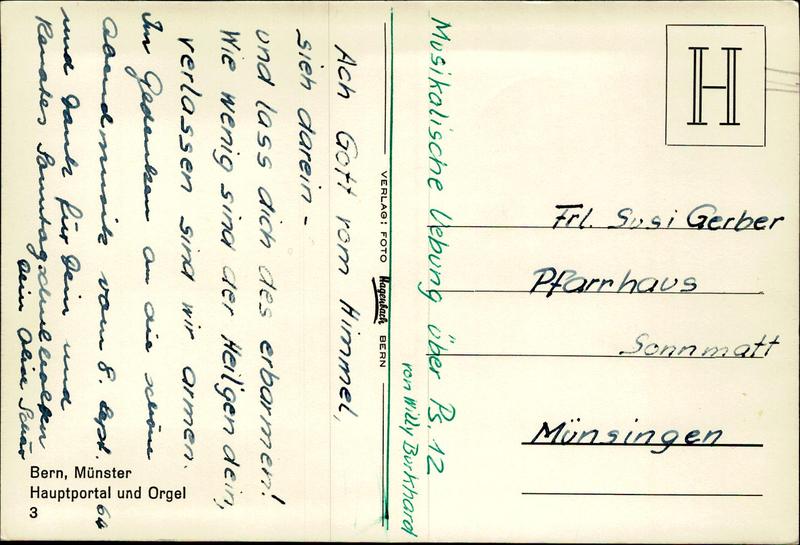 Musikalische Uebung über Ps. 12
von Willy Burkhard
Ach Gott vom Himmel,
sieh darein -
und lass dich des erbarmen!
Wie wenig sind der Heiligen dein,
verlassen sind wir armen.
Im Gedenken an die schöne
Abendmusik vom 8. Sept. 64
und Dank für Dein und
Renates Sonntagschulhelfen
Dein
VERLAG: FOTO Hagenbach BERN
H
Frl. Susi Gerber
Pfarrhaus
Sonnmatt
Münsingen
Bern, Münster
Hauptportal und Orgel
3